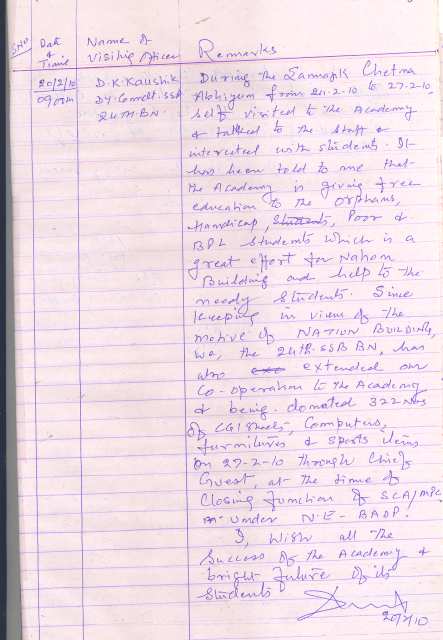 S/No Date & Time Name of Visiting Officer Remarks
20/2/10 D.K. Kaushik During the Chetna
09 pm Dy. Comdt. SSB Abhiyan from 20.2.10 to 27.2.10,
24TH.BN. self visited to the Academy
& talked to the Staff &
interacted with students. It
has been told to me that
the Academy is giving free
education to the orphans,
Handicap, Students, Poor &
BPL Students which is a
great effort for Nation
Building and help to the
needy Students. Since
keeping in view of the
motive of NATION BUILDING,
We, the 24th. SSB BN, has
also extended our
Co-operation to the Academy
& being donated 322 Nos
of CGI Sheets, Computers,
furnitures & Sports items
on 27-2-10 through Chief
Guest, at the time of
Closing function of SCA/MPC
under N.E-BADP.
I, wish all the
Success of the Academy &
bright future of its
Students
20/2/10